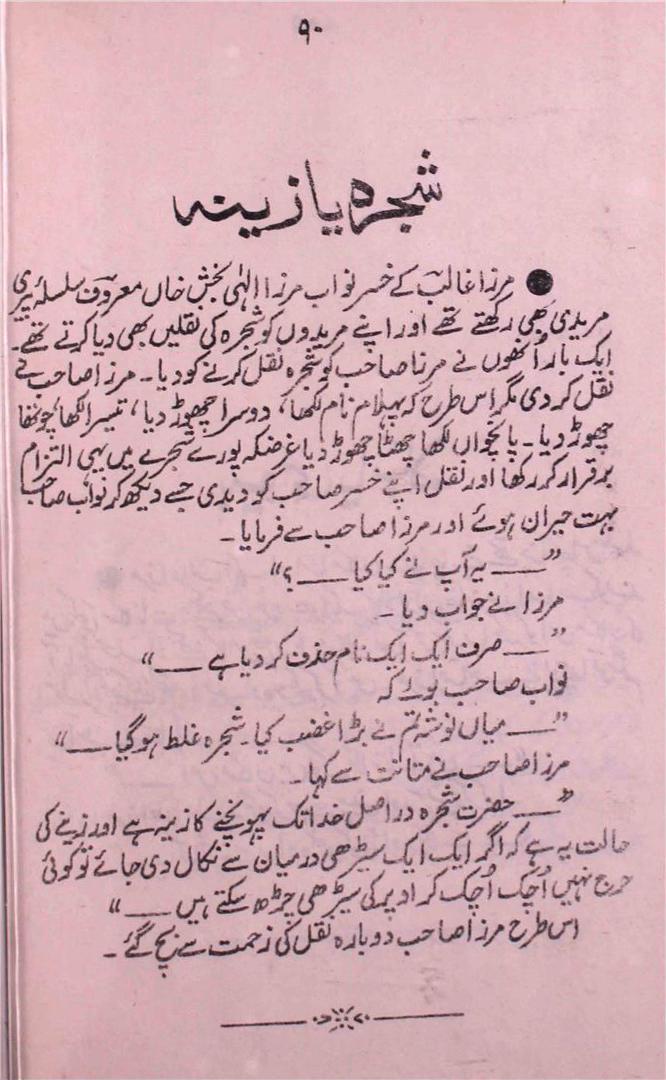 ۹۰
شجرہ یا زینہ
● مرزا غالبؔ کے خسر نواب مرزا الٰہی بخش خاں معروفؔ سلسلۂ پیری
مریدی بھی رکھتے تھے اور اپنے مریدوں کو شجرہ کی نقلیں بھی دیا کرتے تھے۔
ایک بار اُنھوں نے مرزا صاحب کو شجرہ نقل کرنے کو دیا۔ مرزا صاحب نے
نقل کر دی مگر اس طرح کہ پہلا نام لکھا، دوسرا چھوڑ دیا، تیسرا لکھا، چوتھا
چھوڑ دیا۔ پانچواں لکھا چھٹا چھوڑ دیا غرضکہ پورے شجرے میں یہی التزام
برقرار کر رکھا اور نقل اپنے خسر صاحب کو دیدی جسے دیکھ کر نواب صاحب
بہت حیران ہوئے اور مرزا صاحب سے فرمایا۔
”—— یہ آپ نے کیا کیا ——؟“
مرزا نے جواب دیا۔
”—— صرف ایک ایک نام حذف کر دیا ہے ——“
نواب صاحب بولے کہ
”—— میاں نوشہ تم نے بڑا غضب کیا۔ شجرہ غلط ہو گیا ——“
مرزا صاحب نے متانت سے کہا۔
”—— حضرت شجرہ دراصل خدا تک پہونچنے کا زینہ ہے اور زینے کی
حالت یہ ہے کہ اگر ایک ایک سیڑھی درمیان سے نکال دی جائے تو کوئی
حرج نہیں اُچک اُچک کر اوپر کی سیڑھی چڑھ سکتے ہیں ——“
اس طرح مرزا صاحب دوبارہ نقل کی زحمت سے بچ گئے۔